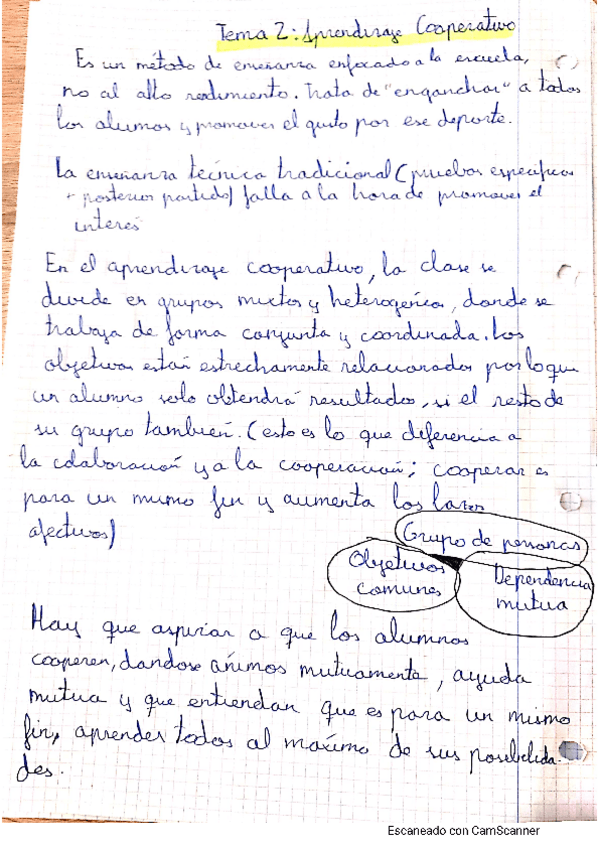 Tema 2: Aprendizaje Cooperativo
Es un método de enseñanza enfocado a la escuela,
no al alto rendimiento. Trata de "enganchar" a todos
los alumos y promover el gusto por ese deporte.
La enseñanza técnica tradicional (pruebas específicas
+ posterior partido) falla a la hora de promover el
interés
En el aprendizaje cooperativo, la clase se
divide en grupos mixtos y heterogéneos, donde se
trabaja de forma conjunta y coordinada. Los
objetivos están estrechamente relacionados por lo que
un alumno solo obtendrá resultados, si el resto de
su grupo también. (esto es lo que diferencia a
la colaboración y a la cooperación; cooperar es
para un mismo fin y aumenta los lazos
afectivos)
Grupo de personas
Objetivos
comunes
Dependencia
mutua
Hay que aspirar a que los alumnos
cooperen, dandose ánimos mutuamente, ayuda
mutua y que entiendan que es para un mismo
fin, aprender todos al máximo de sus posibilida-
des.
Escaneado con CamScanner